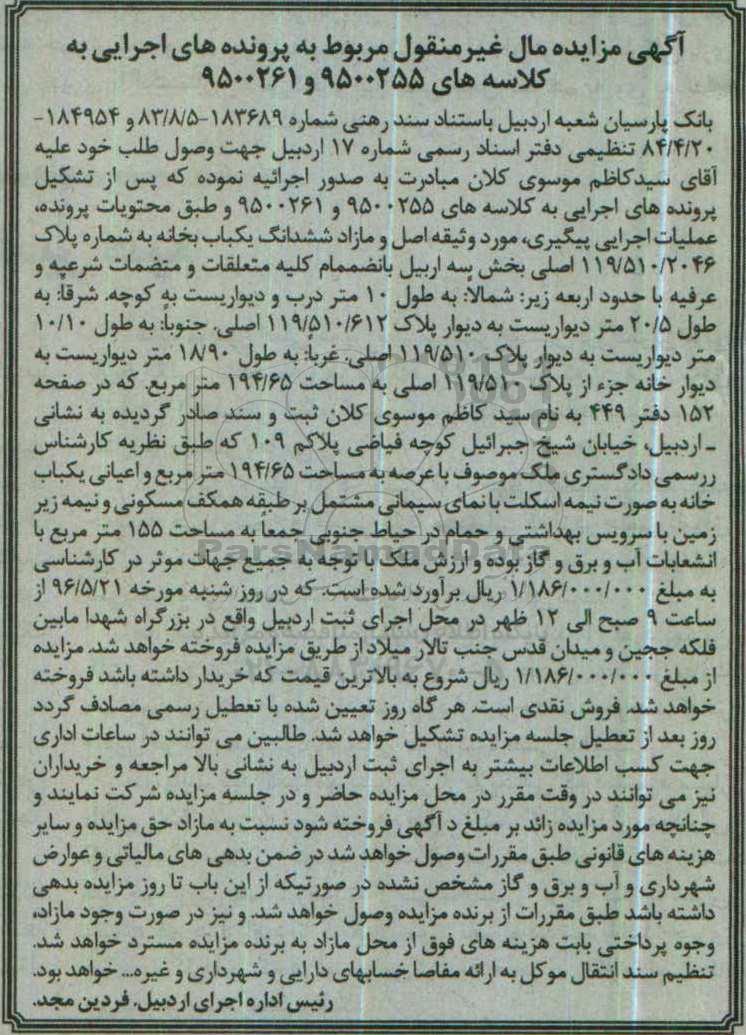 آگهی مزایده مال غیرمنقول مربوط به پرونده های اجرایی به
کلاسه های ۹۵۰۰۲۵۵ و ۹۵۰۰۲۶۱
بانک پارسیان شعبه اردبیل باستناد سند رهنی شماره ۱۸۳۶۸۹-۸۳/۸/۵ و ۱۸۴۹۵۴-
۸۴/۴/۲۰ تنظیمی دفتر اسناد رسمی شماره ۱۷ اردبیل جهت وصول طلب خود علیه
آقای سیدکاظم موسوی کلان مبادرت به صدور اجرائیه نموده که پس از تشکیل
پرونده های اجرایی به کلاسه های ۹۵۰۰۲۵۵ و ۹۵۰۰۲۶۱ و طبق محتویات پرونده،
عملیات اجرایی پیگیری، مورد وثیقه اصل و مازاد ششدانگ یکباب بخانه به شماره پلاک
۱۱۹/۵۱۰/۲۰۴۶ اصلی بخش سه اربیل بانضممام کلیه متعلقات و متضمات شرعیه و
عرفیه با حدود اربعه زیر: شمالاً: به طول ۱۰ متر درب و دیواریست به کوچه. شرقا: به
طول ۲۰/۵ متر دیواریست به دیوار پلاک ۱۱۹/۵۱۰/۶۱۲ اصلی. جنوباً: به طول ۱۰/۱۰
متر دیواریست به دیوار پلاک ۱۱۹/۵۱۰ اصلی. غرباً: به طول ۱۸/۹۰ متر دیواریست به
دیوار خانه جزء از پلاک ۱۱۹/۵۱۰ اصلی به مساحت ۱۹۴/۶۵ متر مربع. که در صفحه
۱۵۲ دفتر ۴۴۹ به نام سید کاظم موسوی کلان ثبت و سند صادر گردیده به نشانی
ـ اردبیل، خیابان شیخ جبرائیل کوچه فیاضی پلاکم ۱۰۹ که طبق نظریه کارشناس
ررسمی دادگستری ملک موصوف با عرصه به مساحت ۱۹۴/۶۵ متر مربع و اعیانی یکباب
خانه به صورت نیمه اسکلت با نمای سیمانی مشتمل بر طبقه همکف مسکونی و نیمه زیر
زمین با سرویس بهداشتی و حمام در حیاط جنوبی جمعاً به مساحت ۱۵۵ متر مربع با
انشعابات آب و برق و گاز بوده و ارزش ملک با توجه به جمیع جهات موثر در کارشناسی
به مبلغ ۱/۱۸۶/۰۰۰/۰۰۰ ریال برآورد شده است. که در روز شنبه مورخه ۹۶/۵/۲۱ از
ساعت ۹ صبح الی ۱۲ ظهر در محل اجرای ثبت اردبیل واقع در بزرگراه شهدا مابین
فلکه ججین و میدان قدس جنب تالار میلاد از طریق مزایده فروخته خواهد شد. مزایده
از مبلغ ۱/۱۸۶/۰۰۰/۰۰۰ ریال شروع به بالاترین قیمت که خریدار داشته باشد فروخته
خواهد شد. فروش نقدی است. هر گاه روز تعیین شده با تعطیل رسمی مصادف گردد
روز بعد از تعطیل جلسه مزایده تشکیل خواهد شد. طالبین می توانند در ساعات اداری
جهت کسب اطلاعات بیشتر به اجرای ثبت اردبیل به نشانی بالا مراجعه و خریداران
نیز می توانند در وقت مقرر در محل مزایده حاضر و در جلسه مزایده شرکت نمایند و
چنانچه مورد مزایده زائد بر مبلغ د آگهی فروخته شود نسبت به مازاد حق مزایده و سایر
هزینه های قانونی طبق مقررات وصول خواهد شد در ضمن بدهی های مالیاتی و عوارض
شهرداری و آب و برق و گاز مشخص نشده در صورتیکه از این باب تا روز مزایده بدهی
داشته باشد طبق مقررات از برنده مزایده وصول خواهد شد. و نیز در صورت وجود مازاد،
وجوه پرداختی بابت هزینه های فوق از محل مازاد به برنده مزایده مسترد خواهد شد.
تنظیم سند انتقال موکل به ارائه مفاصا خسابهای دارایی و شهرداری و غیره... خواهد بود.
رئیس اداره اجرای اردبیل. فردین مجد.
ParsNamadData